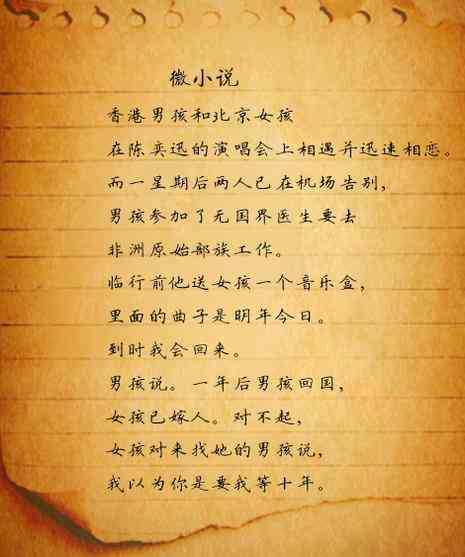 微小说
香港男孩和北京女孩
在陈奕迅的演唱会上相遇并迅速相恋。
而一星期后两人已在机场告别，
男孩参加了无国界医生要去
非洲原始部族工作。
临行前他送女孩一个音乐盒，
里面的曲子是明年今日。
到时我会回来。
男孩说。一年后男孩回国，
女孩已嫁人。对不起，
女孩对来找她的男孩说，
我以为你是要我等十年。